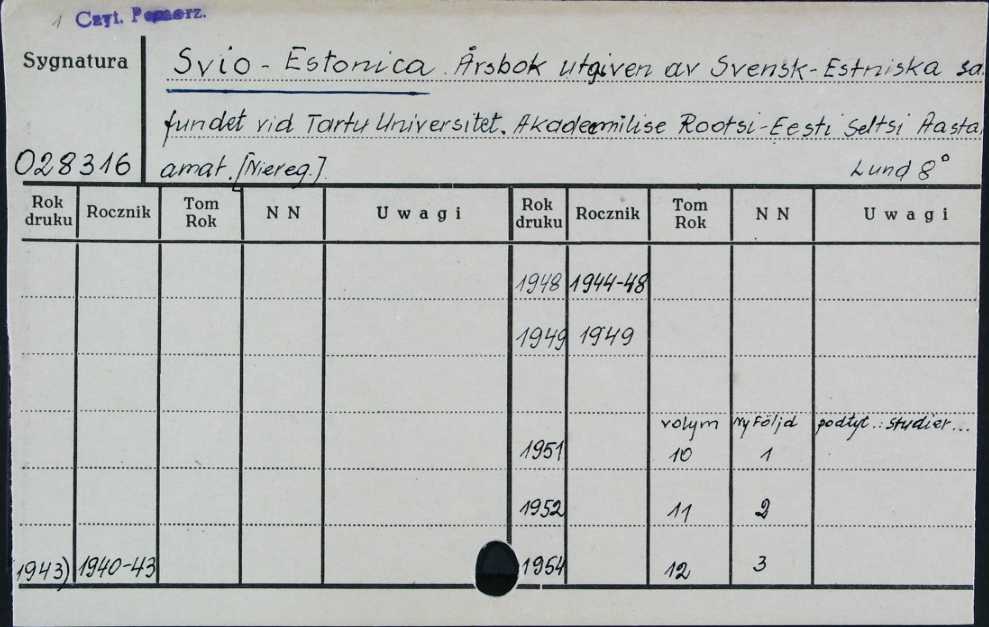 1 Czyt. Pomorz.
Sygnatura
Svio - Estonica. Årsbok utgiven av Svensk-Estniska sa
fundet vid Tartu Universitet. Akadeemilise Rootsi-Eesti Seltsi Aasta
028316 amat. [Niereg.]. Lund 8°
Rok druku Rocznik Tom Rok N N Uwagi Rok druku Rocznik Tom Rok N N Uwagi
1948 1944-48
1949 1949
volym Ny Följd podtyt.: studier...
1951 10 1
1952 11 2
1943) 1940-43 1954 12 3